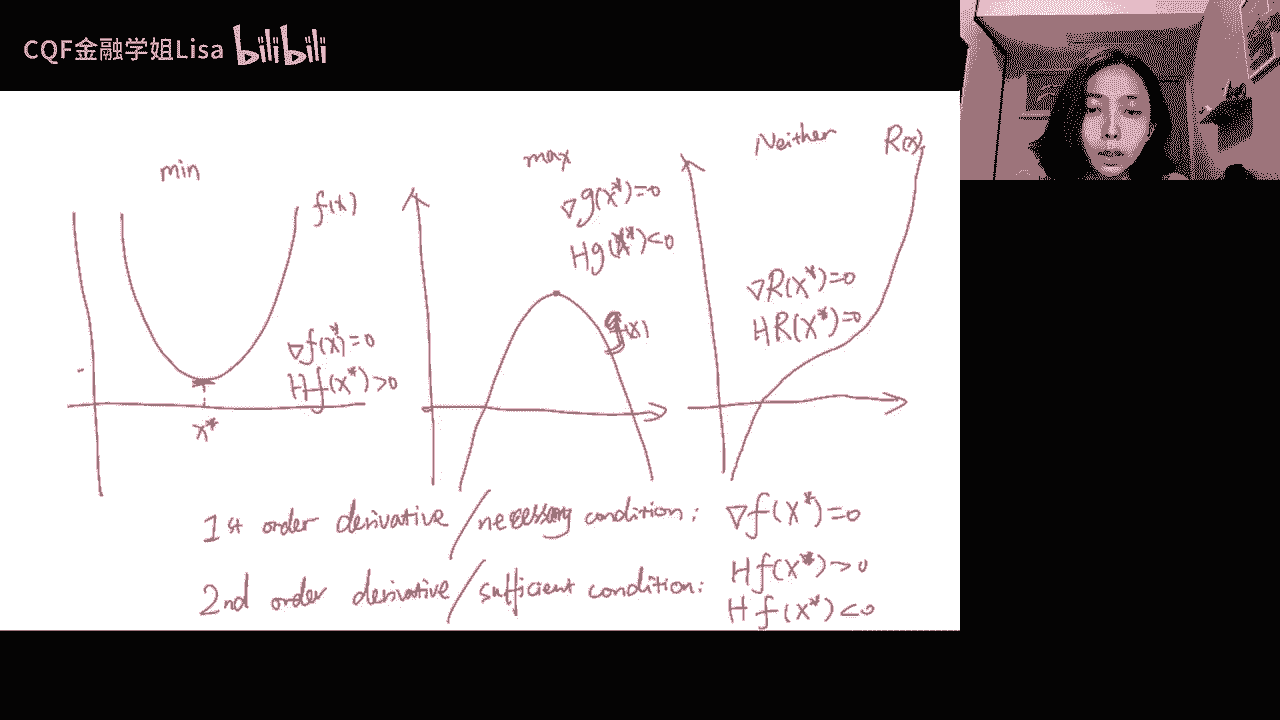 CQF金融学姐Lisa bilibili
min
f(x)
∇f(x*)=0
Hf(x*)>0
x*
max
∇g(x*)=0
Hg(x*)<0
g(x)
Neither
R(x)
∇R(x*)=0
HR(x*)=0
1st order derivative/necessary condition: ∇f(x*)=0
2nd order derivative/sufficient condition: Hf(x*)>0
Hf(x*)<0